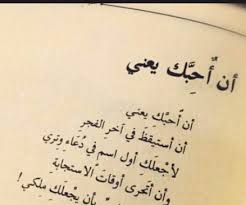 أن أُحبَّك يعني
أن أُحبَّكِ يعني
أن أستيقظ في آخر الفجر
لأجعلك أول اسم في دُعاء وتري
وأن أتحرى أوقات الاستجابة
بأن يجعلكِ ملكي !